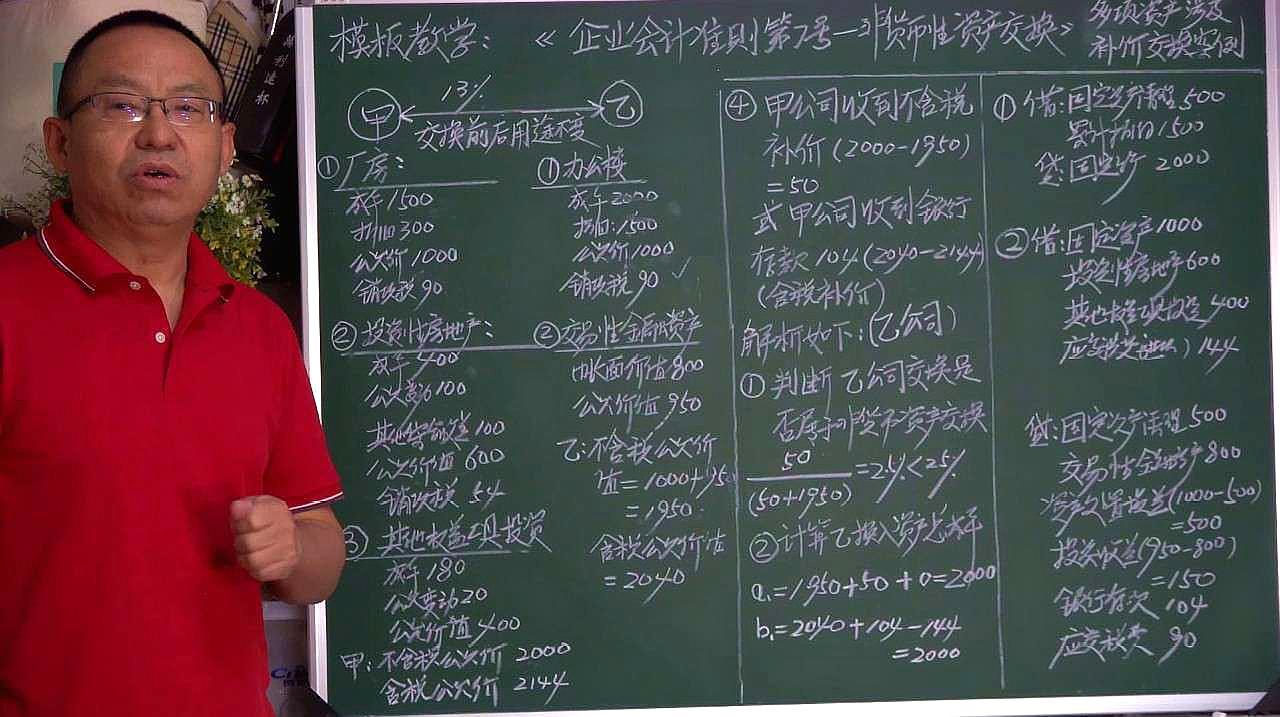 模板教学：《企业会计准则第7号—非货币性资产交换》
多项资产涉及
补价交换案例
甲 13% 乙
交换前后用途不变
①厂房：
成本1500
折旧300
公允价1000
销项税90
②投资性房地产：
成本400
公允变动100
其他综合收益100
公允价值600
销项税54
③其他权益工具投资
成本180
公允变动20
公允价值400
甲：不含税公允价2000
含税公允价2144
①办公楼
成本2000
折旧:1500
公允价1000
销项税90 ✓
②交易性金融资产
账面价值800
公允价值950
乙:不含税公允价
值=1000+950
=1950
含税公允价值
=2040
④甲公司收到不含税
补价(2000-1950)
=50
或甲公司收到银行
存款104(2040-2144)
(含税补价)
解析如下:(乙公司)
①判断乙公司交换是
否属于非货币资产交换
50
(50+1950)
=2.5%<25%
②计算乙换入资产总成本
a₁=1950+50+0=2000
b₁=2040+104-144
=2000
①借:固定资产清理500
累计折旧1500
贷:固定资产2000
②借:固定资产1000
投资性房地产600
其他权益工具投资400
应交税费(进项)144
贷:固定资产清理500
交易性金融资产800
资产处置损益(1000-500)
=500
投资收益(950-800)
=150
银行存款104
应交税费90